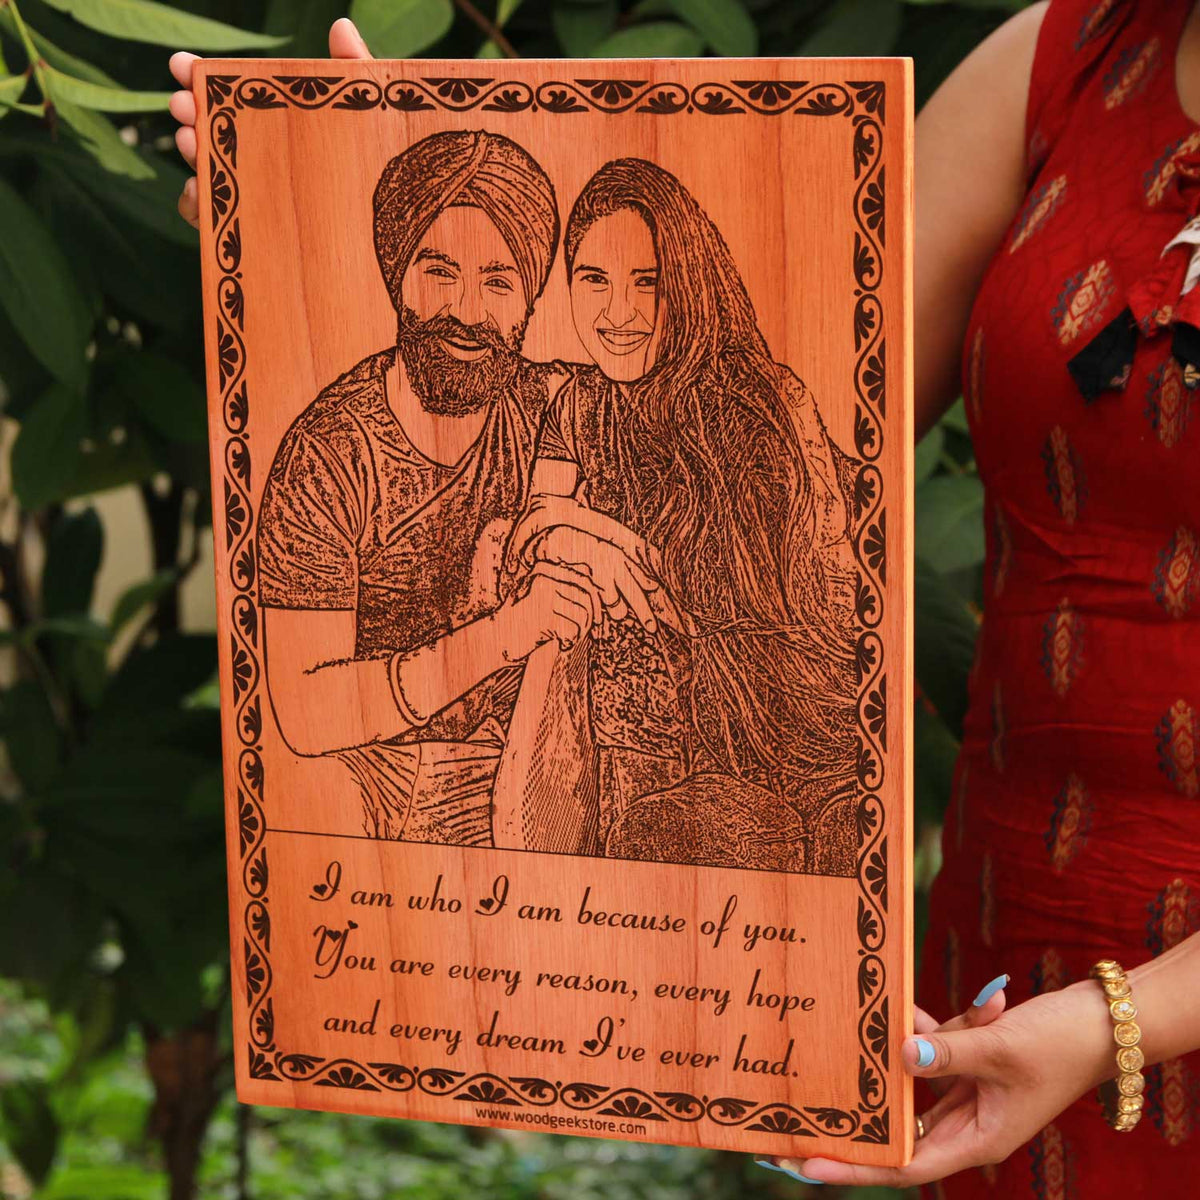 I am who I am because of you.
You are every reason, every hope
and every dream I've ever had.
www.woodgeekstore.com